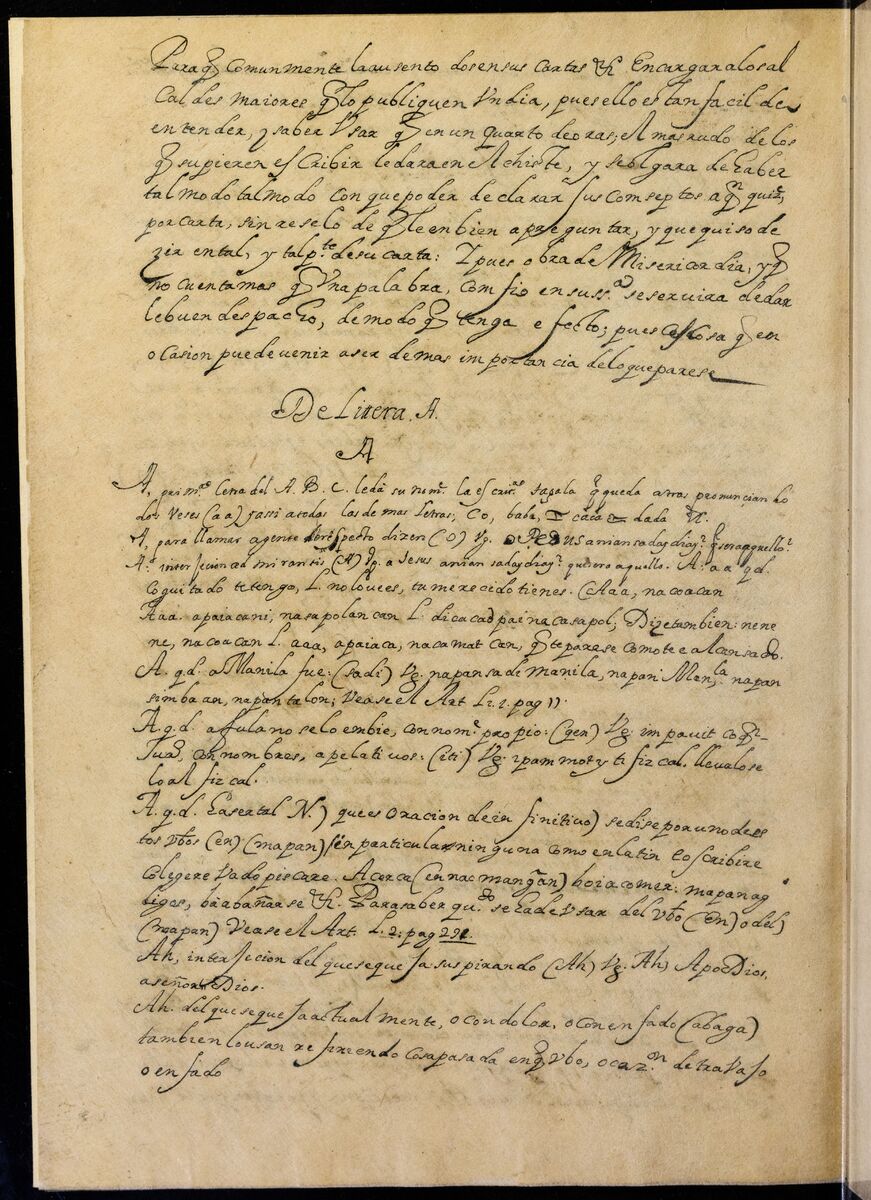 Para q̃ comunmente la ausento dosensus cartas &c. Encargar alos al
Caldes maiores q̃ lo publiquen Undia, pues ello es tan facil de
entender, y saber Usar q̃ en un quarto de oras, el mas rudo de los
q̃ supieren escribir le dara en el chiste, y seobligara de haber
tal modo tal modo con que poder declarar sus comseptos a qn quiz.
por carta, sin reselo de q̃ le enbien a preguntar, y que quiso de
zir en tal, y tal p.te de su carta: Y pues obra de Misericordia, y q̃
no cuenta mas q̃ Una palabra, comfio en su ss.a se servira de dar
le buen despacho, de modo q̃ tenga efecto; pues es cosa q̃ en
ocasion puede venir a ser de mas importancia delo que parese
De Litera A.
A
A, prim.ra letra del A. B. C. ledã su nom.e la escrit.as tagala q̃ queda atras pronuncian ho
dos veses (aa) y assi a todas las demas letras; Co, baba, caca dada &c.
A, para llamar a gente de respecto dizen (O) Vg. o Pedus anian sadaydiay.
A. interjecion ad mirantis (A) Vg. a Jesus anian sadaydiay quiero aquello. A. aa q.d.
Coguitado te tengo, L. no lo vees, tu merecido tienes. (Aaa, nacoacan
Aaa. apaiacani, nasapolan can L. dicacad painacasapol, Dizetambien: nene
ne, nacoacan L. aaa, apaiaca, nacamatcan, q̃ teparese comote e alcansado.
A. q.d. a Manila fue: (sadi) Vg. napansadi manila, napani Men.la napan
simbaan, napantalon; Vease el Art L. 2. pag 11.
A q.d. a fulano selo embie, con nom.e propio: (qen) Vg. impauit co
Juan, con nombres, apelativos: (iti) Vg. ipammoty ti fizcal. llevalose
lo al fizcal.
A. q.d. haser tal N.) que es oracion de in finitivo) se dise por uno des
tos vbos (en) (mapan) sen particular ninguna como en latin Eo scribere
Colegere Vado piscare. Acerca (ennac mangan) hoia comer: mapanag
bigos, bãabañarse &c. Para saber qu.do sehade Usar del vbo (En) o del)
(mapan) Vease el Art. L. 2. pag 291.
Ah, interjecion del que sequexa suspirando (Ah) Vg. Ah, Apo Dios,
a señor Dios.
Ah. del que sequexa actualmente, o con dolor, o con enfado (abaga)
tambien lo usan refiriendo cosa pasada en q̃ Vbo, ocaz.on de travajo
o enfado